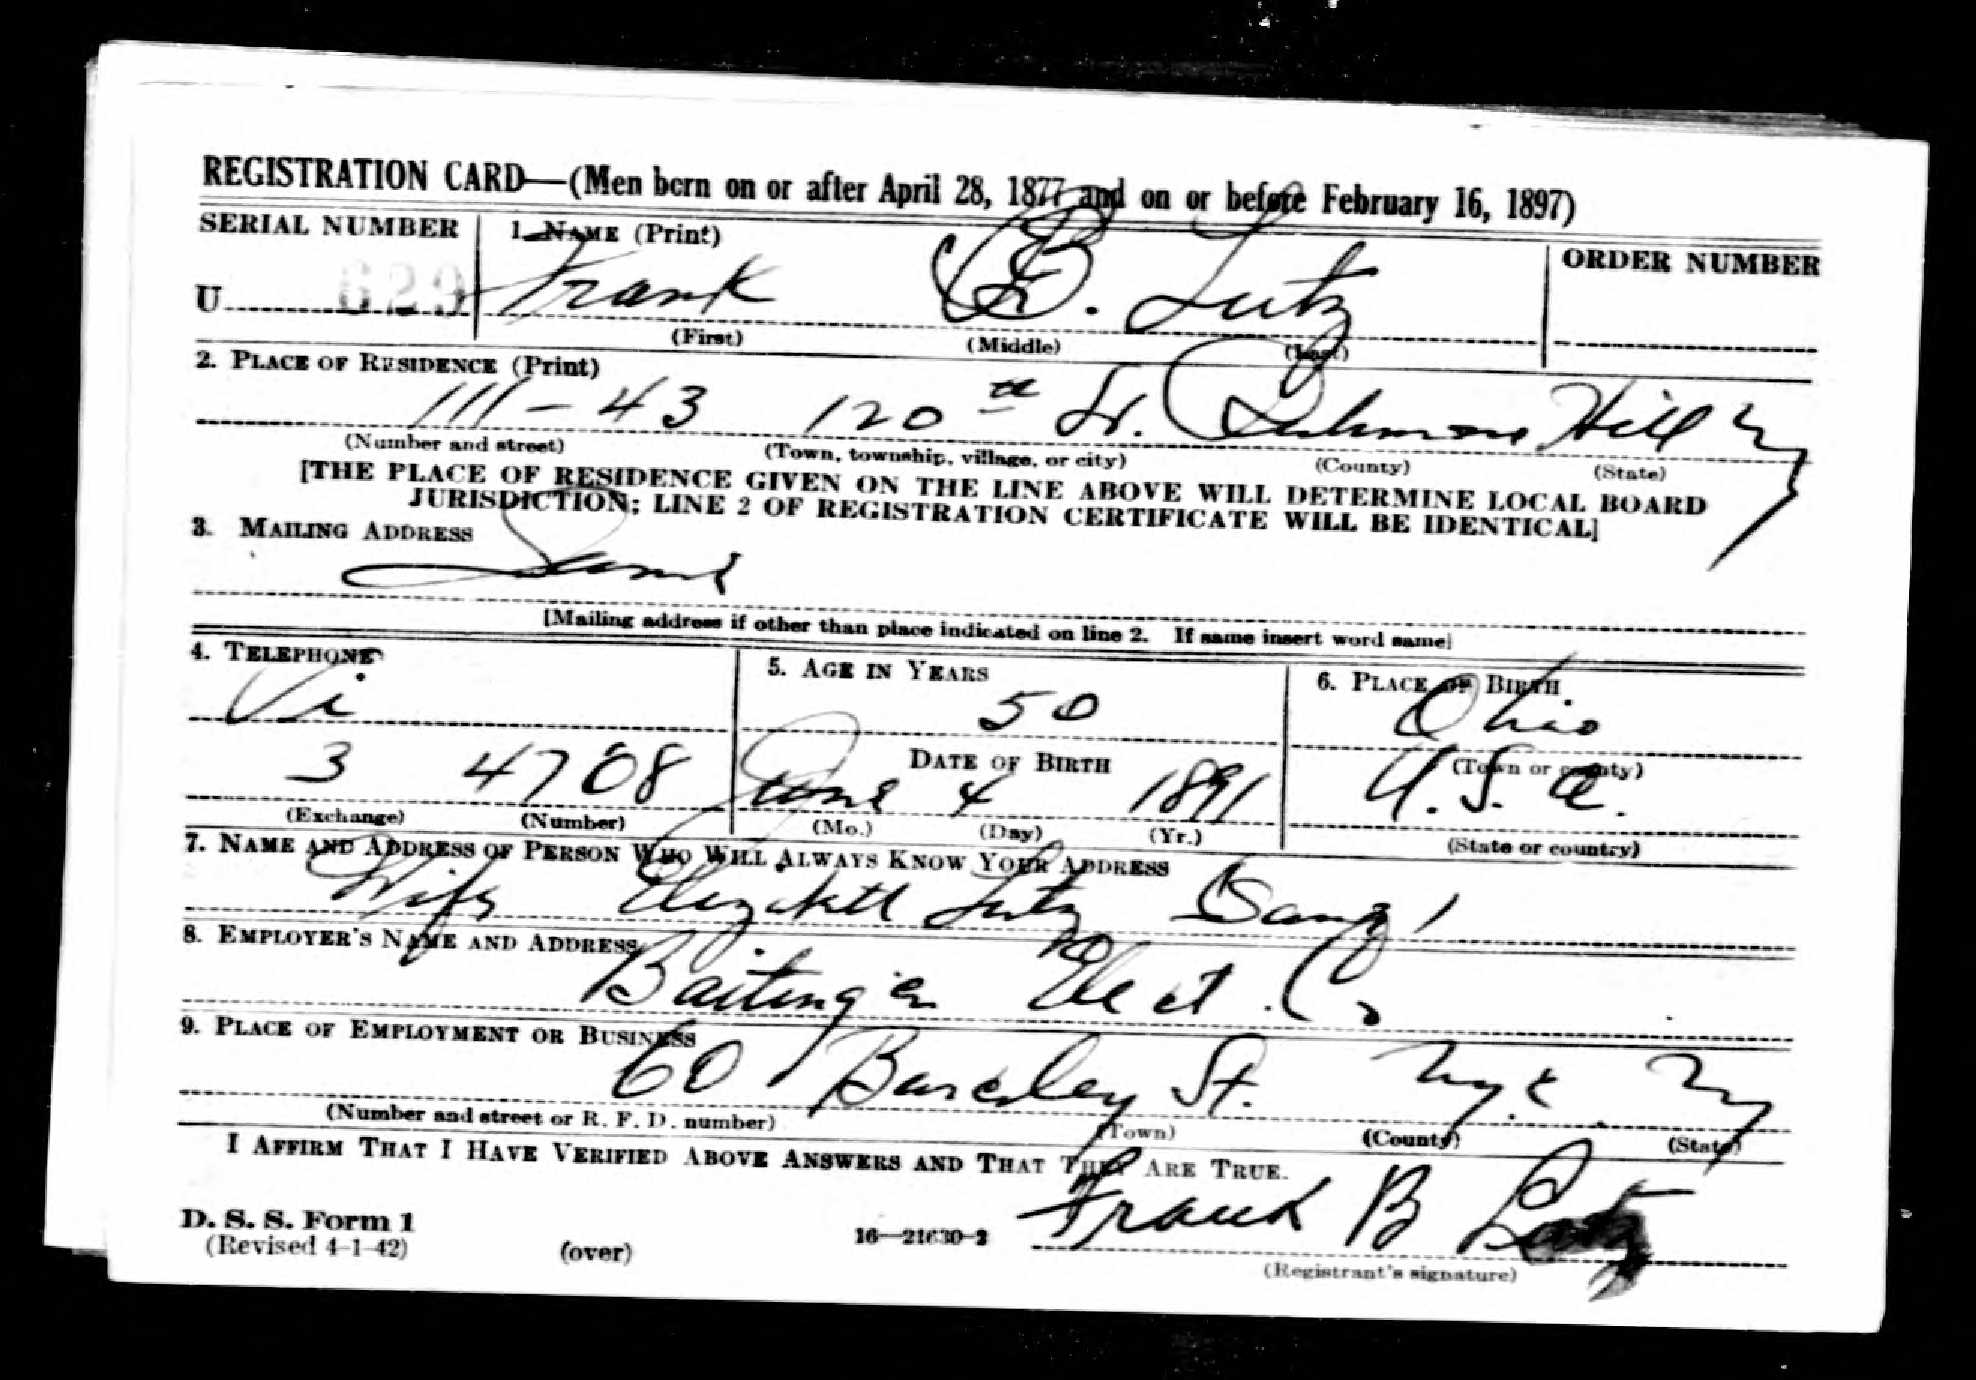 REGISTRATION CARD—(Men born on or after April 28, 1877 and on or before February 16, 1897)
SERIAL NUMBER
1. NAME (Print)
ORDER NUMBER
U 629
Frank B. Lutz
(First) (Middle) (Last)
2. PLACE OF RESIDENCE (Print)
111-43 120th St. Richmond Hill NY
(Number and street) (Town, township, village, or city) (County) (State)
[THE PLACE OF RESIDENCE GIVEN ON THE LINE ABOVE WILL DETERMINE LOCAL BOARD
JURISDICTION; LINE 2 OF REGISTRATION CERTIFICATE WILL BE IDENTICAL]
3. MAILING ADDRESS
Same
[Mailing address if other than place indicated on line 2. If same insert word same]
4. TELEPHONE
5. AGE IN YEARS
6. PLACE OF BIRTH
Vi
50
Ohio
DATE OF BIRTH
(Town or county)
3 4708
June 4 1891
U.S.A.
(Exchange) (Number)
(Mo.) (Day) (Yr.)
(State or country)
7. NAME AND ADDRESS OF PERSON WHO WILL ALWAYS KNOW YOUR ADDRESS
Wife Elizabeth Lutz
8. EMPLOYER'S NAME AND ADDRESS
Baitinger Elect. Co
9. PLACE OF EMPLOYMENT OR BUSINESS
60 Barclay St. N.Y.C. NY
(Number and street or R. F. D. number) (Town) (County) (State)
I AFFIRM THAT I HAVE VERIFIED ABOVE ANSWERS AND THAT THEY ARE TRUE.
Frank B Lutz
D. S. S. Form 1
(Revised 4-1-42)
(over)
16—21630-2
(Registrant's signature)